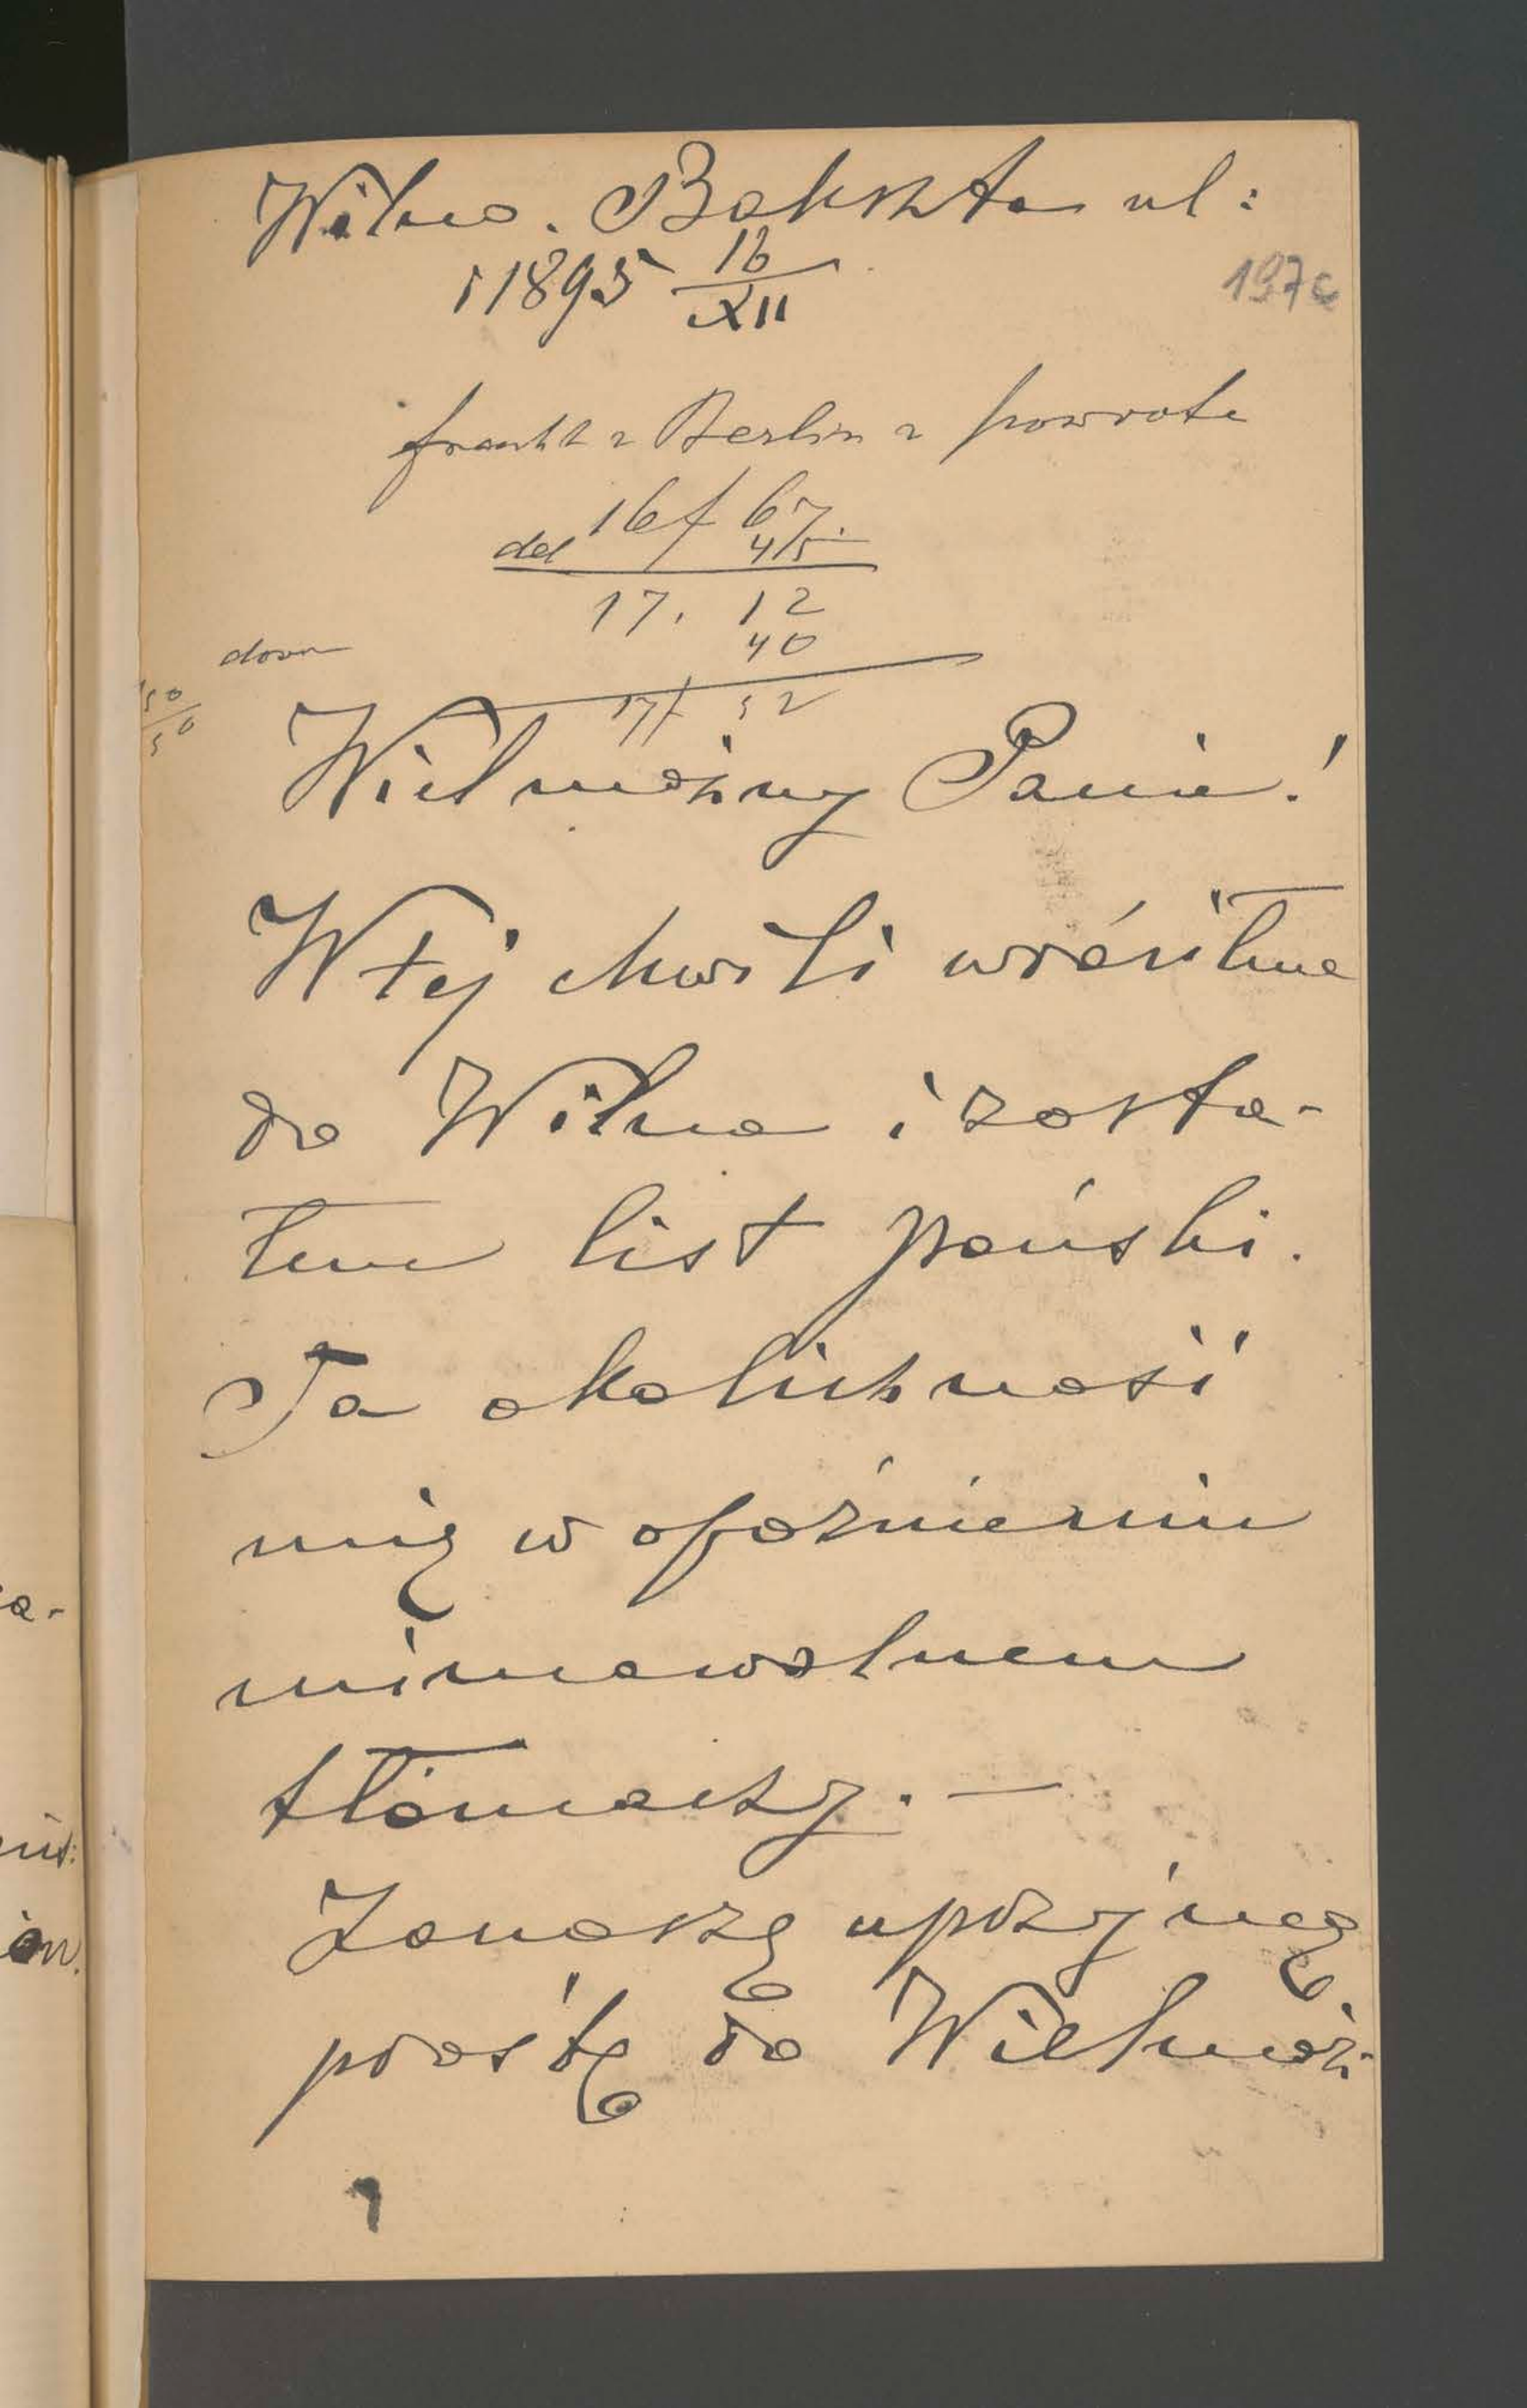 Wilno. Bakszta ul:
r 1895 16/XII
197c
fracht z Berlin z powrote
16 f 67.
dol 45
17. 12
40
17f 52
Wielmożny Panie!
W tej chwili wróciłme
do Wilna i zosta-
łem list pański.
Ta okoliczność
mię w opóźnieniu
mimowolnem
tłómaczy. —
Zanoszę uprzejmą
prośbę do Wielmoż-